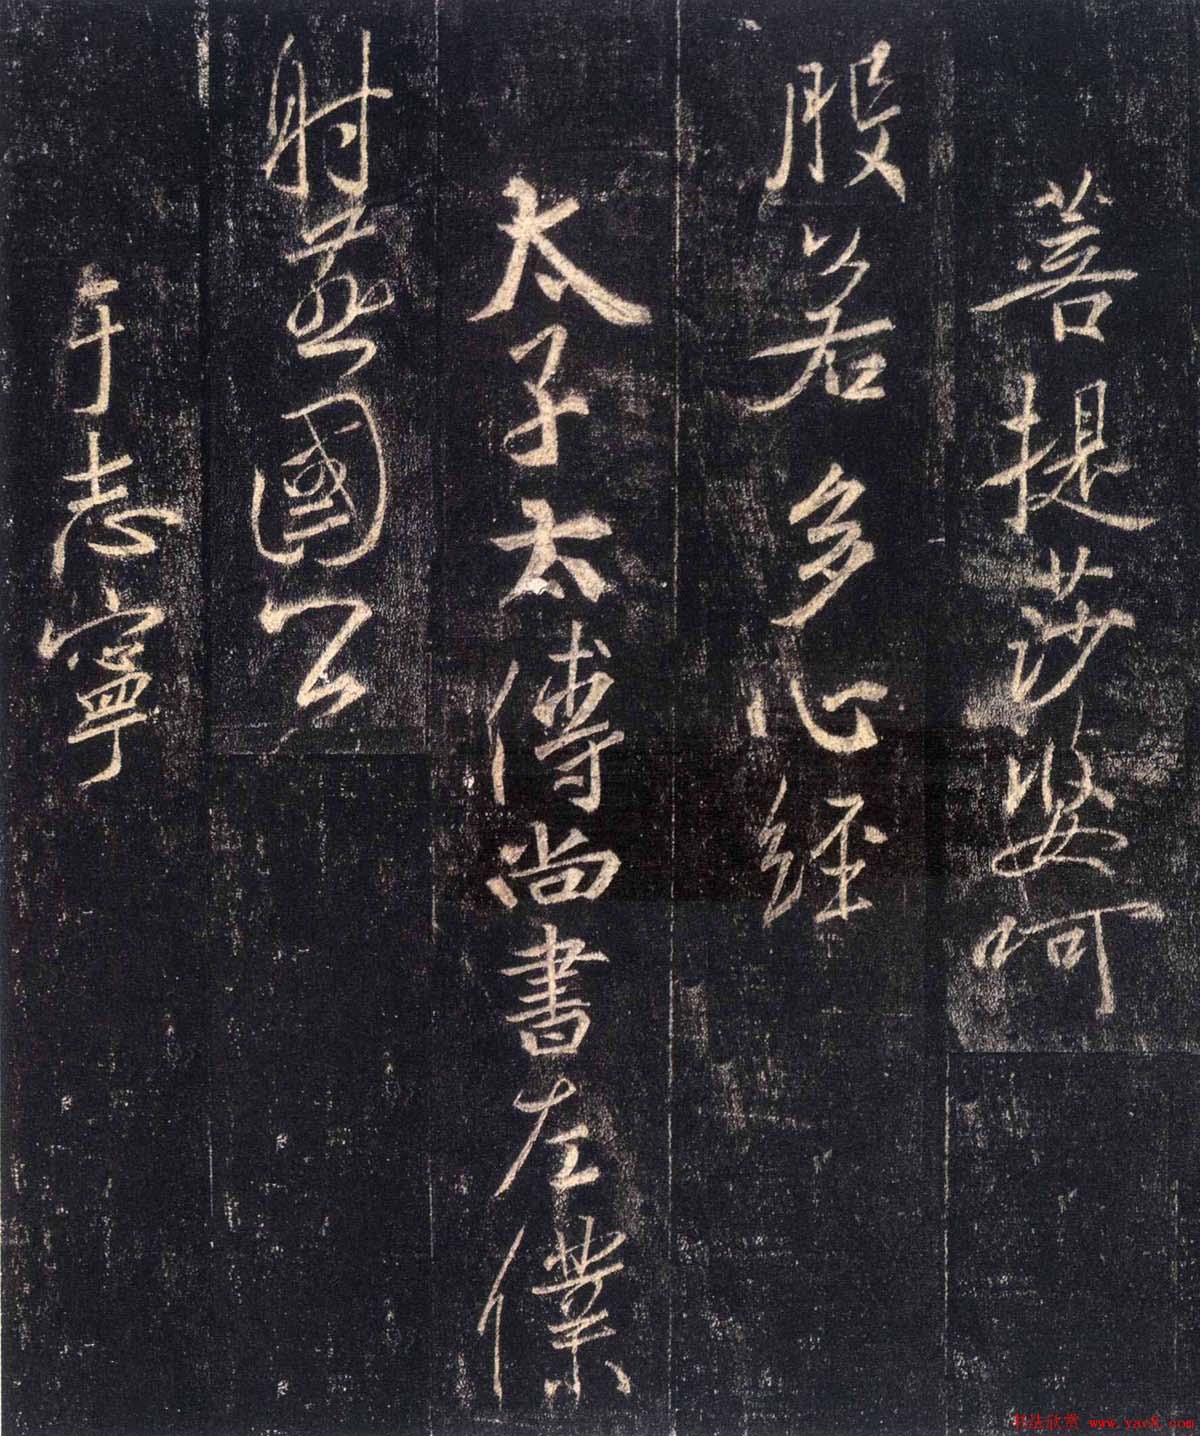 菩提莎婆呵
般若多心經
太子太傅尚書左僕
射燕國公
于志寧
书法欣赏 www.yac8.com